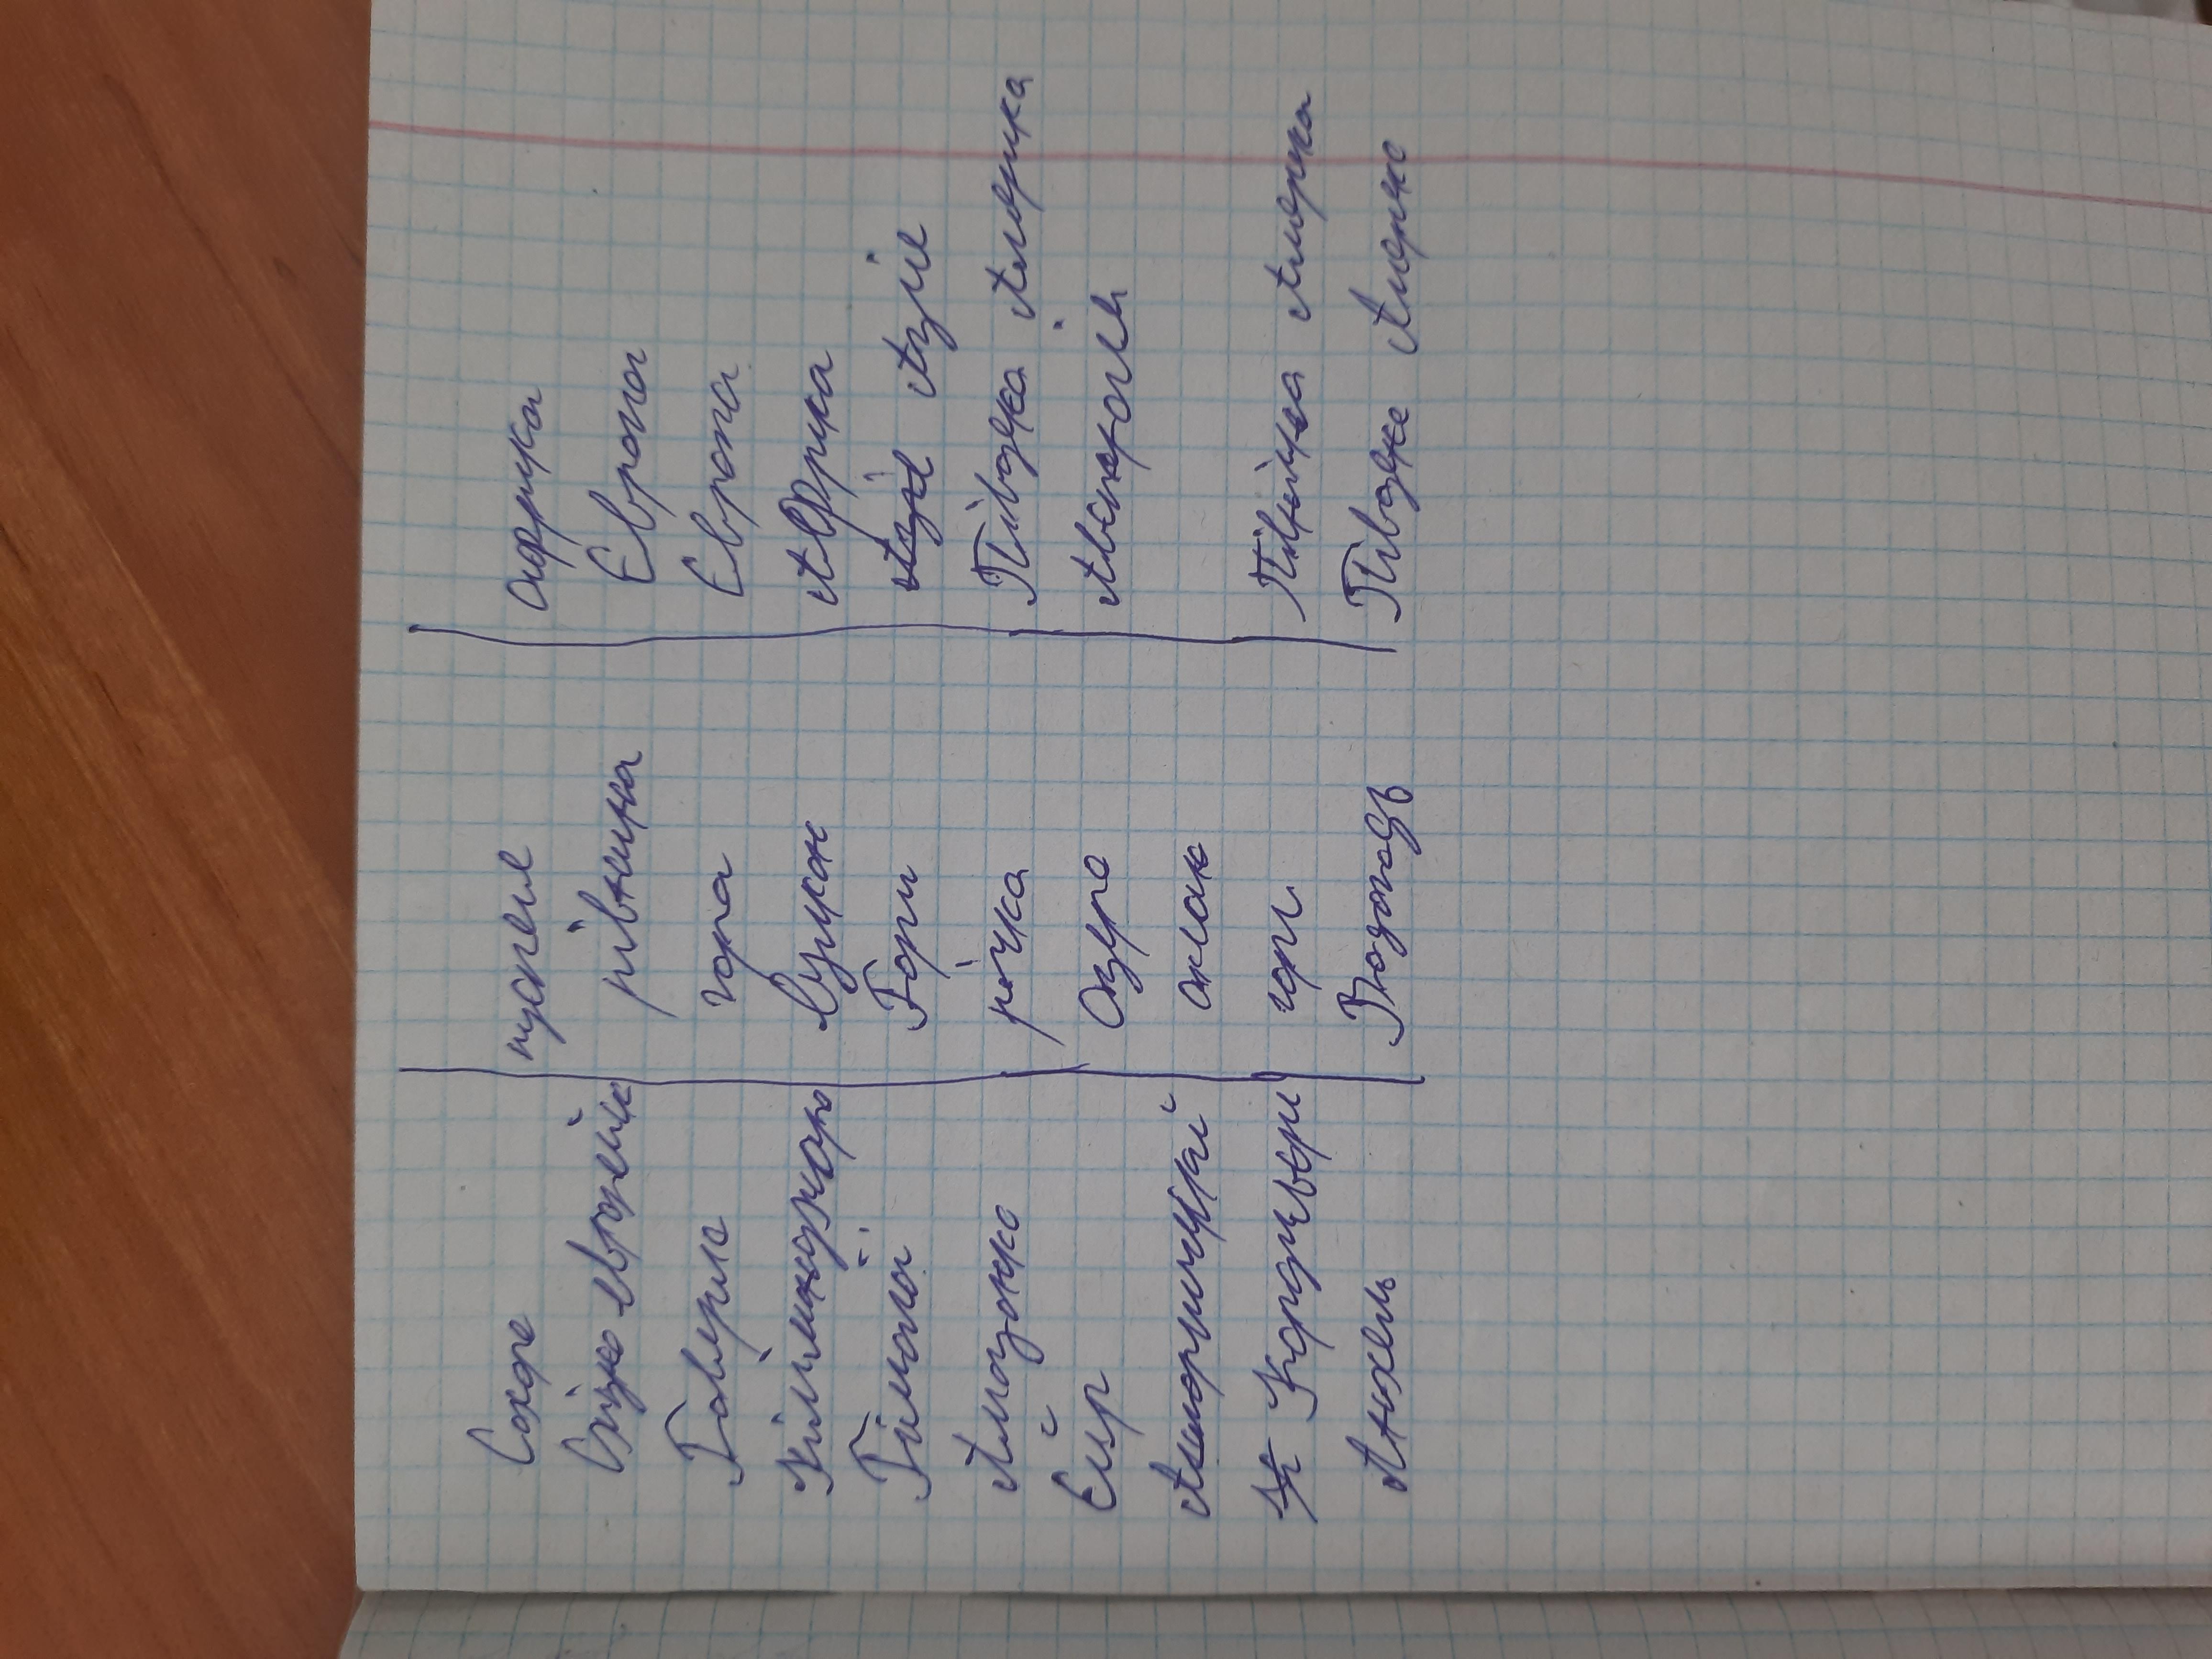 Сахара пустеля Африка
Східно європейська рівнина Європа
Говерла гора Європа
Кіліманджаро вулкан Африка
Гімалаї Гори Азіє
Амазонка річка Південа Америка
Ейр Озеро Австролія
океан
Кордильєри гори Північна Америка
Анхель Водоспадь Південа Америка